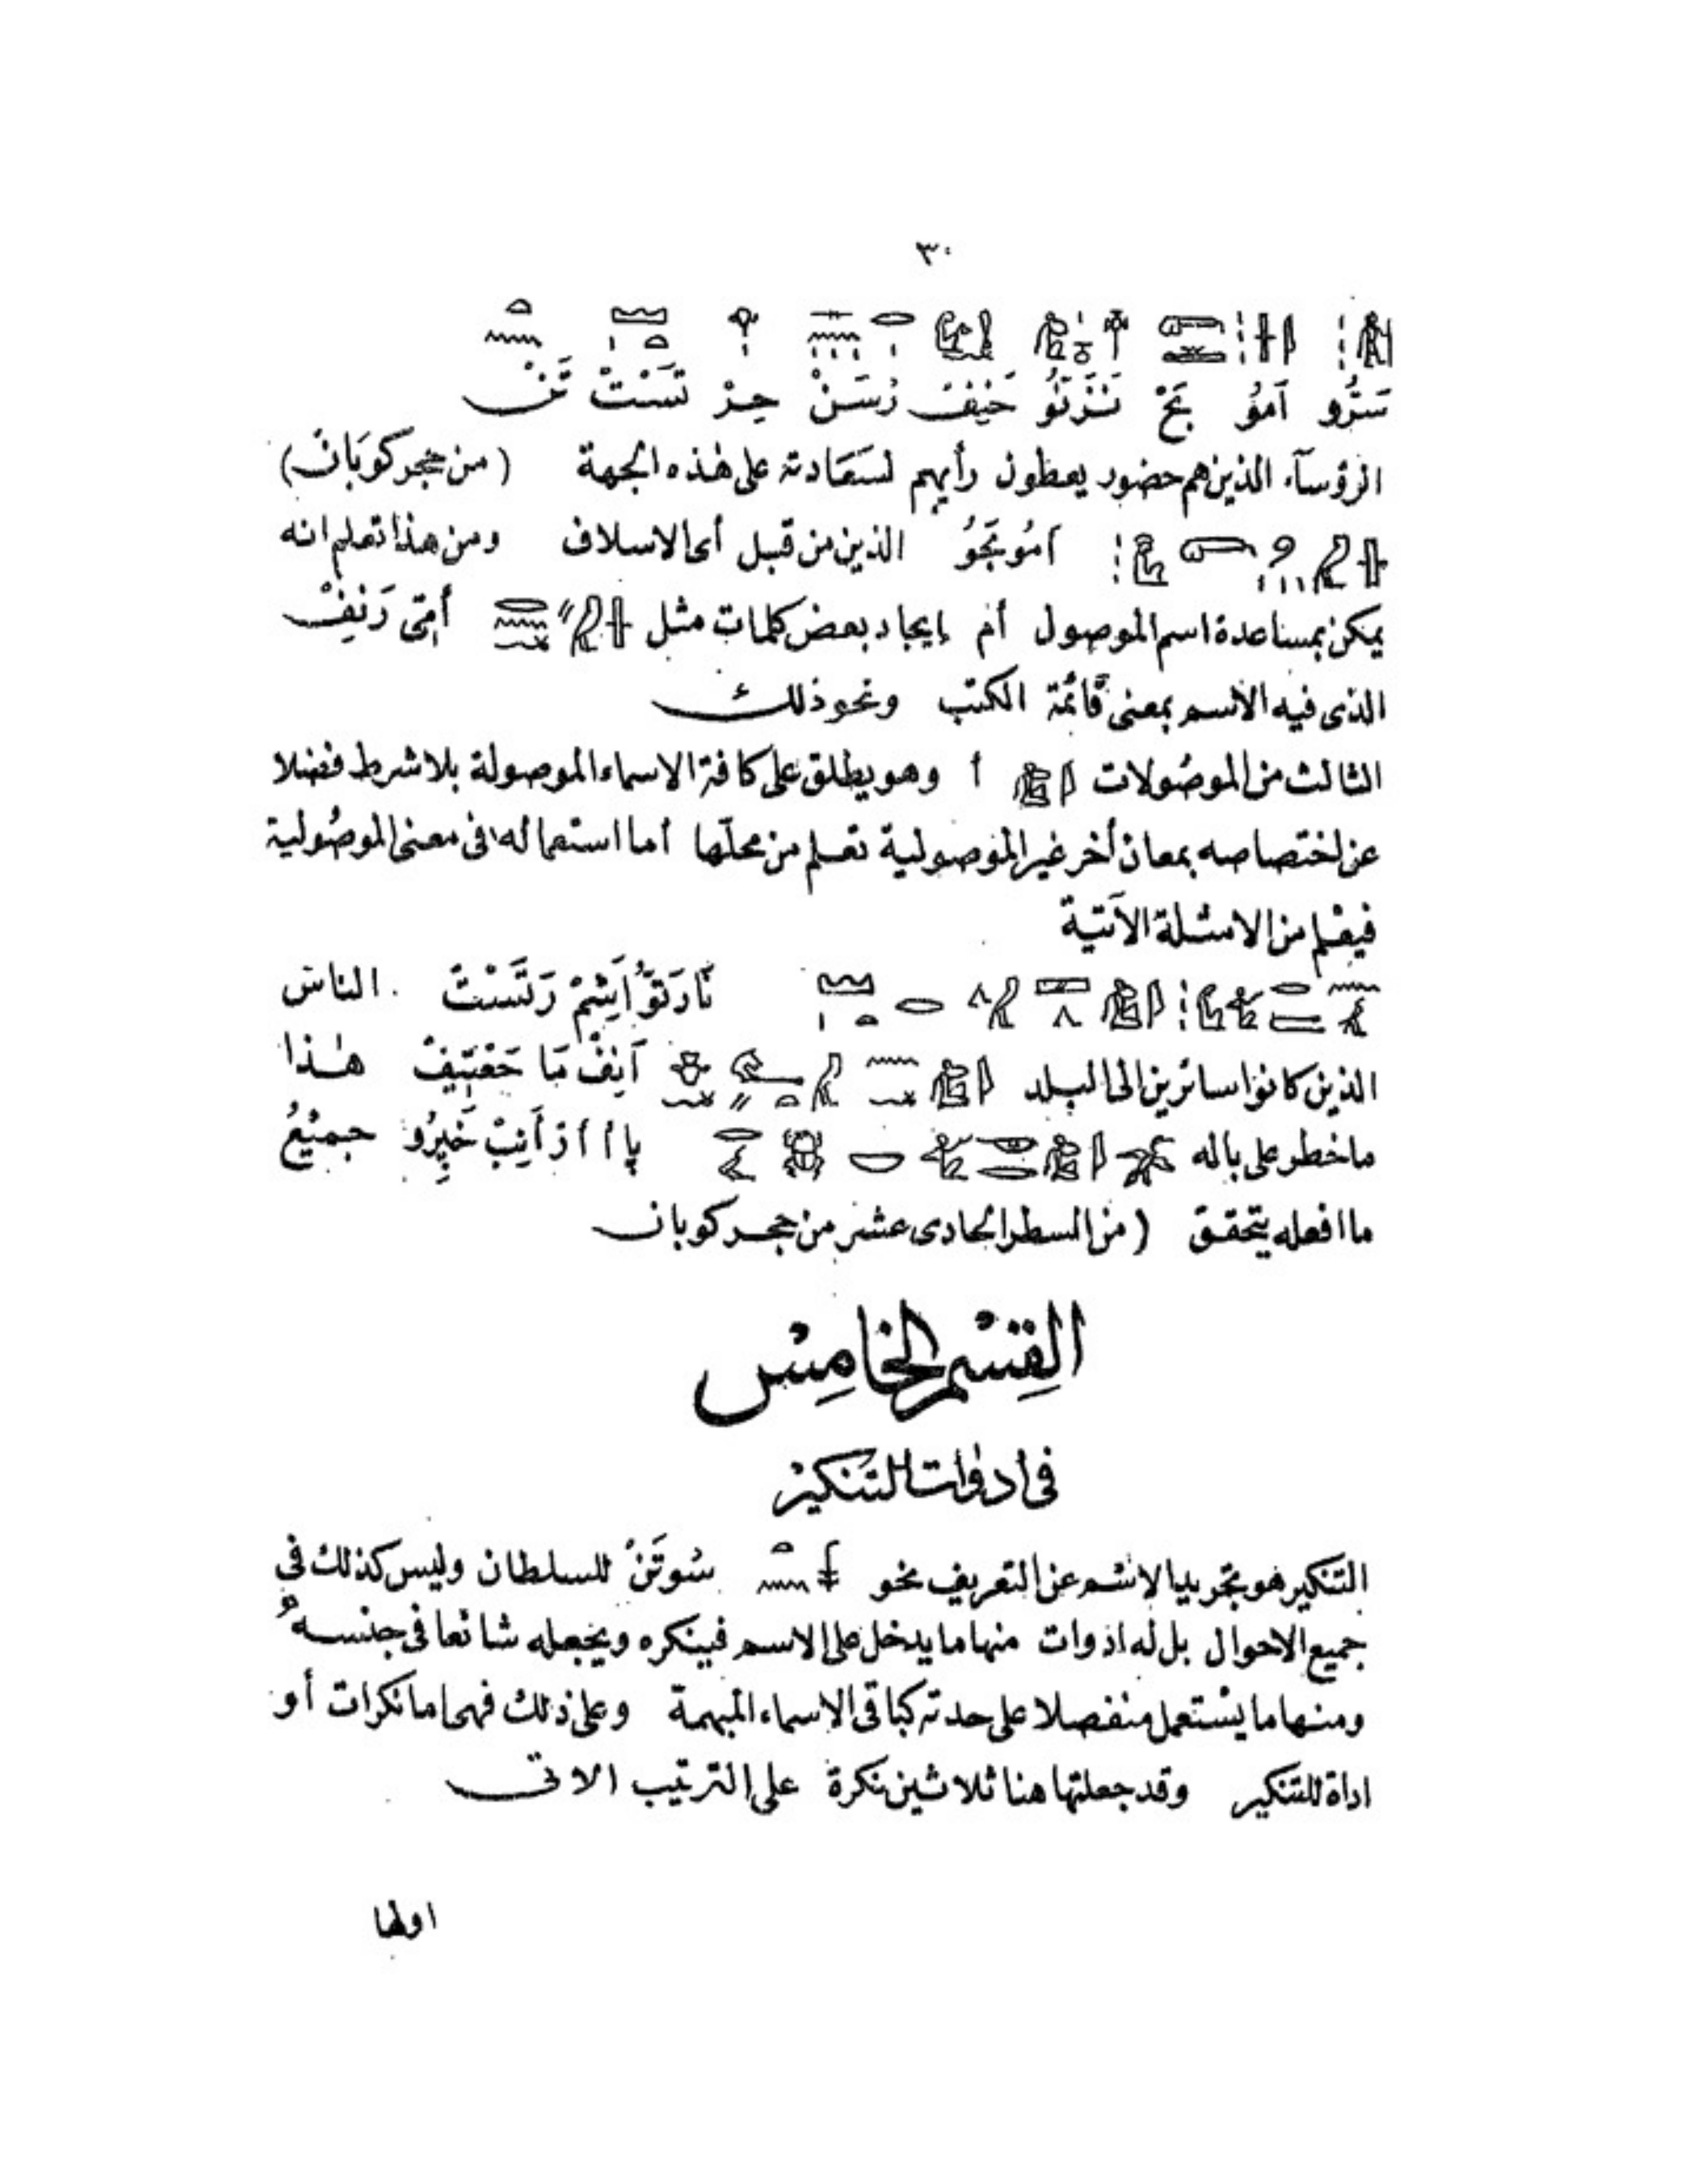 ٣٠
سَرُّو آمُو بَحْ نَزْنُو حَنِفْ رُسَنْ حِرْ تَسَتْ تَنْ
الرؤسآء الذين هم حضور يعطون رأيهم لسَعَادته على هٰذه الجهة (من حجر كوبَان)
آمُو بَحُو الذين من قبل أى الاسلاف ومن هذا تعلم انه
يمكن بمساعدة اسم الموصول أم إيجاد بعض كلمات مثل أمِّى رَنِفْ
الذى فيه الاسم بمعنى قائمة الكتب ونحو ذلك
الثالث من الموصُولات أ وهو يطلق على كافة الاسماء الموصولة بلا شرط فضلا
عن اختصاصه بمعان أخر غير الموصولية تعلم من محلّها أما استعماله فى معنى الموصُولية
فيعْلم من الامثلة الآتية
الناس
الذين كانوا سائرين الى البلد آنِفْ مَا حَعْتِيفْ هٰذا
ما خطر على باله پا أ أر أنِبْ خَپِرُو جميْعُ
ما افعله يتحقق (من السطر الحادى عشر من حجر كوبان
القِسْم الخامِسْ
فى ادوات التنكير
التنكير هو تجريد الاسْم عن التعريف نحو سُوتَنْ للسلطان وليس كذلك فى
جميع الاحوال بل له ادوات منها ما يدخل على الاسم فينكره ويجعله شائعا فى جنسه
ومنها ما يسْتعمل منفصلا على حدته كباقى الاسماء المبهمة وعلى ذلك فهى اما نكرات أو
اداة للتنكير وقد جعلتها هنا ثلاثين نكرة على الترتيب الاتى
اولها